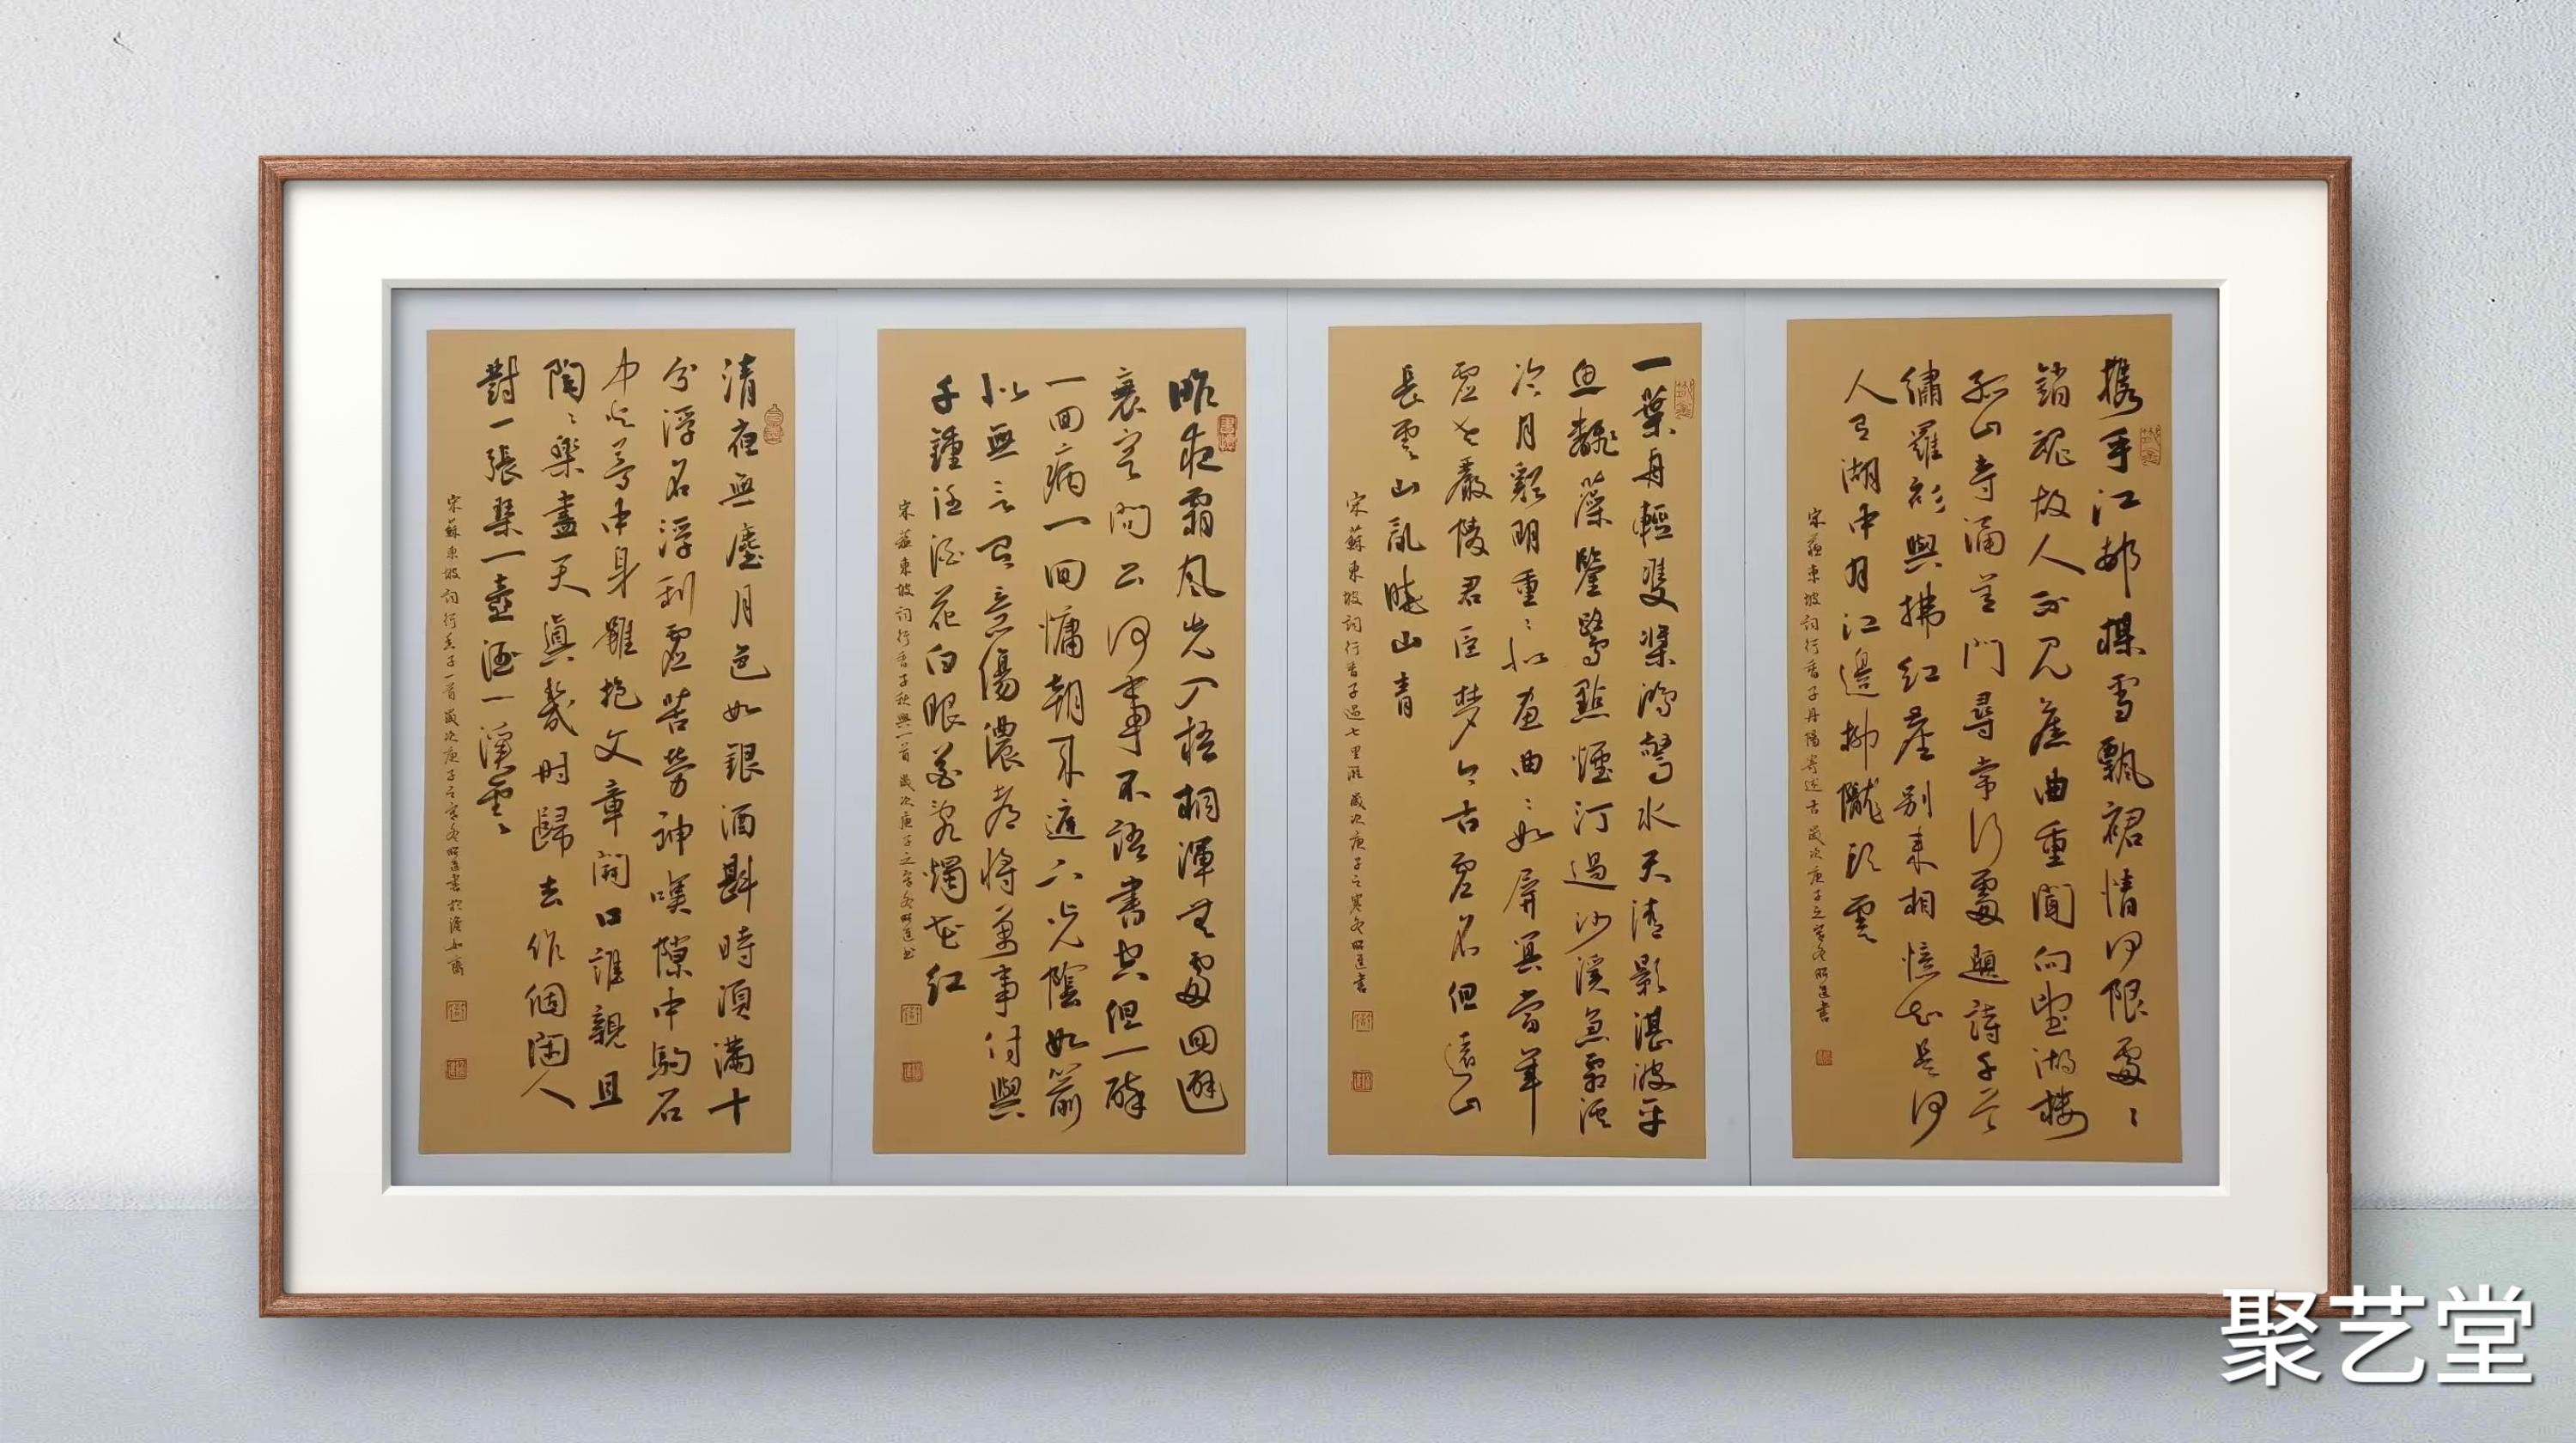 攜手江邨梅雪飄裙情何限處〻
銷魂故人不見舊曲重聞向望湖樓
孤山寺涌金門尋常行處題詩千首
繡羅衫與拂紅塵別來相憶知是何
人有湖中月江邊柳隴頭雲
宋蘇東坡詞行香子丹陽寄述古 歲次庚子之寒冬
一葉舟輕雙槳鴻驚水天清影湛波平
魚翻藻鑒鷺點煙汀過沙溪急霜溪
冷月谿明重〻似畫曲〻如屏算當年
虛老嚴陵君臣夢今古虛名但遠山
長雲山亂曉山青
宋蘇東坡詞行香子過七里瀨 歲次庚子之寒冬
昨夜霜風先入梧桐渾無處回避
衰容問公何事不語書空但一醉
一回病一回慵朝來庭下光陰如箭
似無言有意傷儂都將萬事付與
千鍾任酒花白眼花亂燭花紅
宋蘇東坡詞行香子秋興一首 歲次庚子之寒冬
清夜無塵月色如銀酒斟時須滿十
分浮名浮利虛苦勞神嘆隙中駒石
中火夢中身雖抱文章開口誰親且
陶〻樂盡天真幾時歸去作個閑人
對一張琴一壺酒一溪雲〻
宋蘇東坡詞行香子一首 歲次庚子之寒冬
聚艺堂